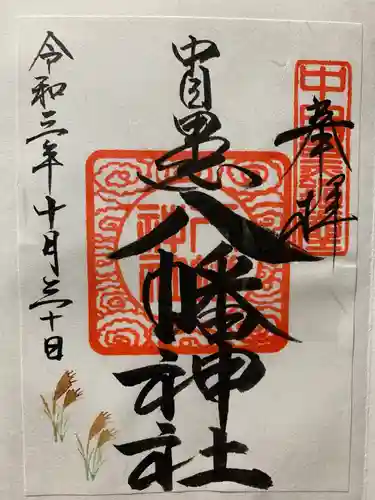 奉拝
中目黒八幡神社
令和三年十月三十日